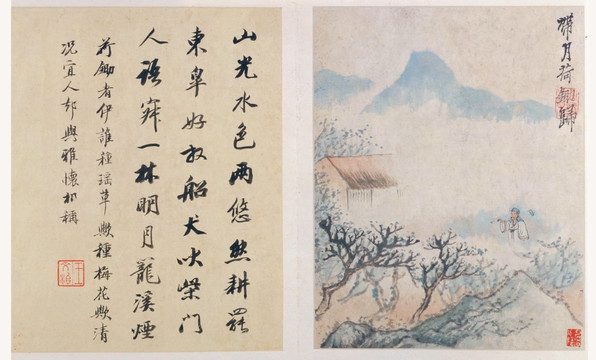 帶月荷鋤歸
山光水色兩悠然耕罷
東皋好放船犬吠柴門
人語寂一林明月籠溪煙
荷鋤者伊誰種瑤草歟種梅花歟清
況宜人卻與雅懷相稱